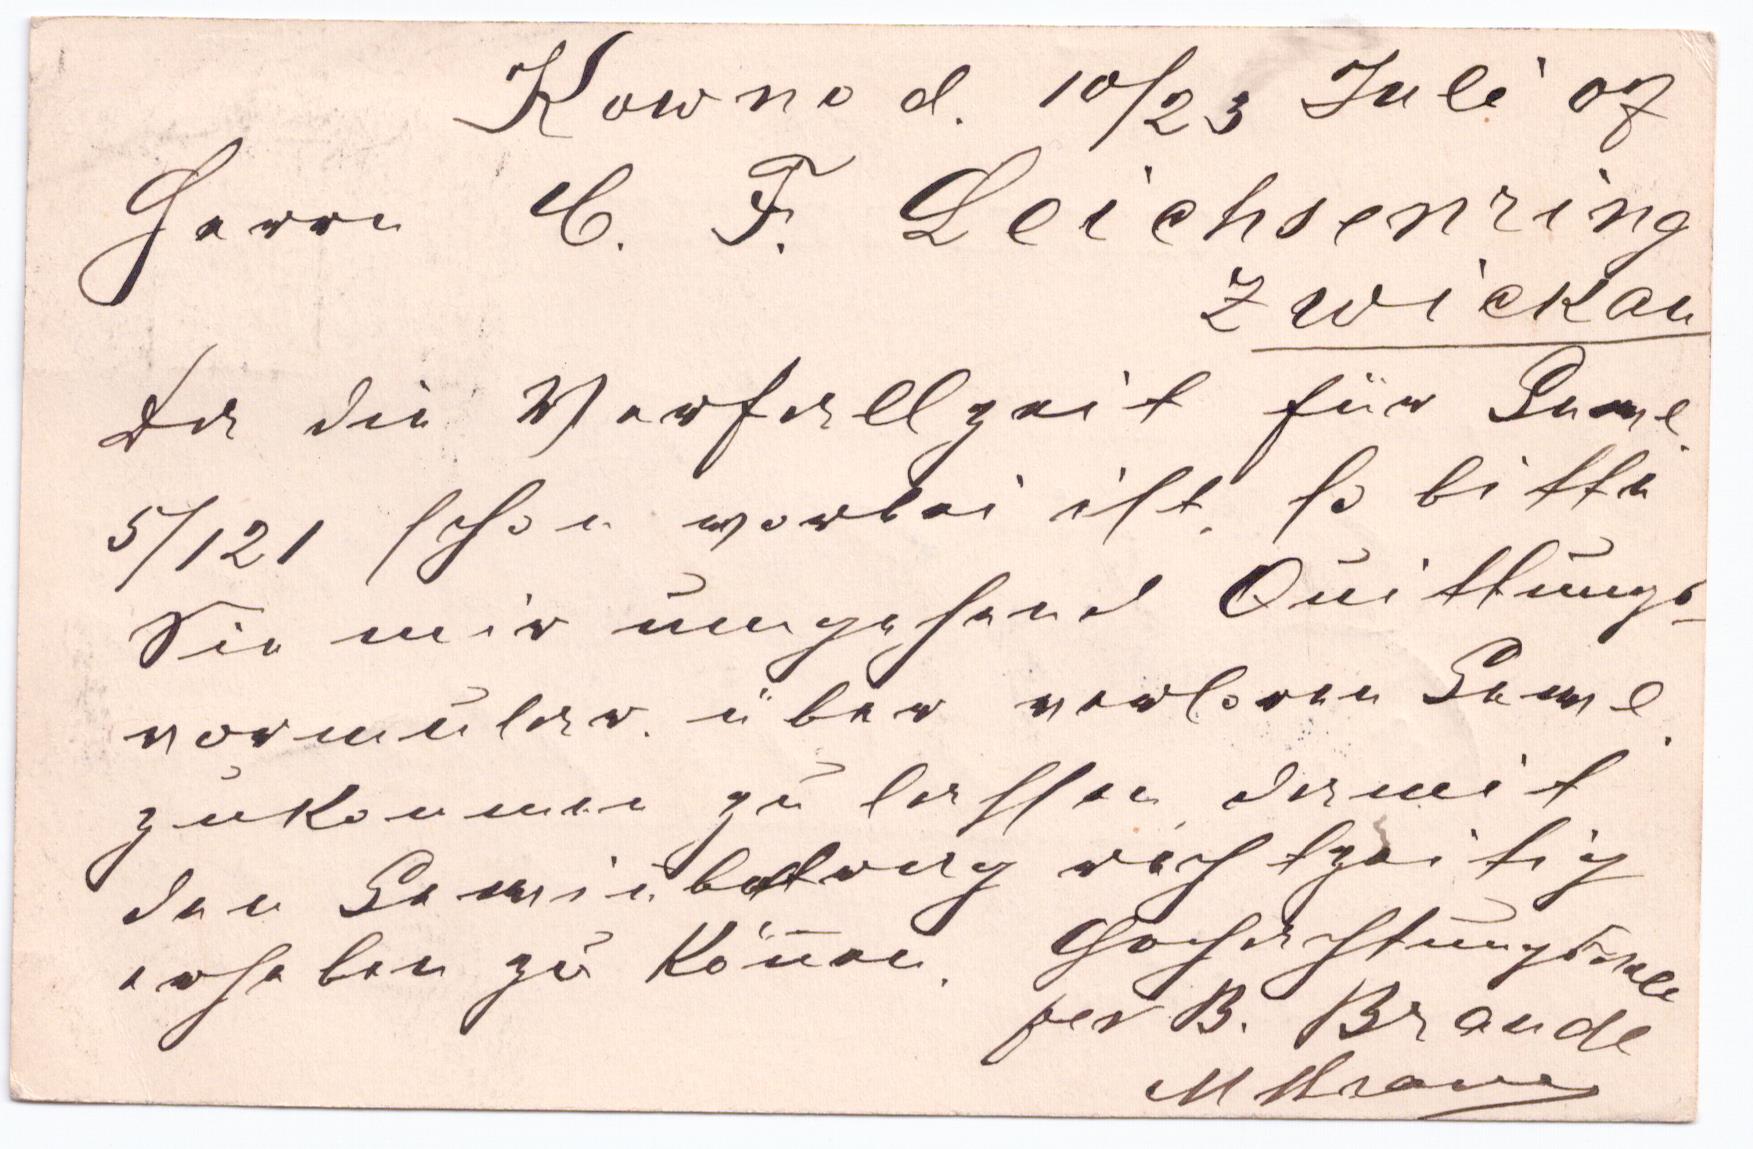 Kowno d. 10/23 Juli 07
Herrn C. F. Leichsenring
Zwickau
Da die Verfallzeit für
5/121 schon vorbei ist, so bitte
Sie mir umgehend Quittungs-
vormular. über verloren
zukommen zu lassen, damit
den richtzeitig
erheben zu können. Hochachtungsvoll
per B. Brande